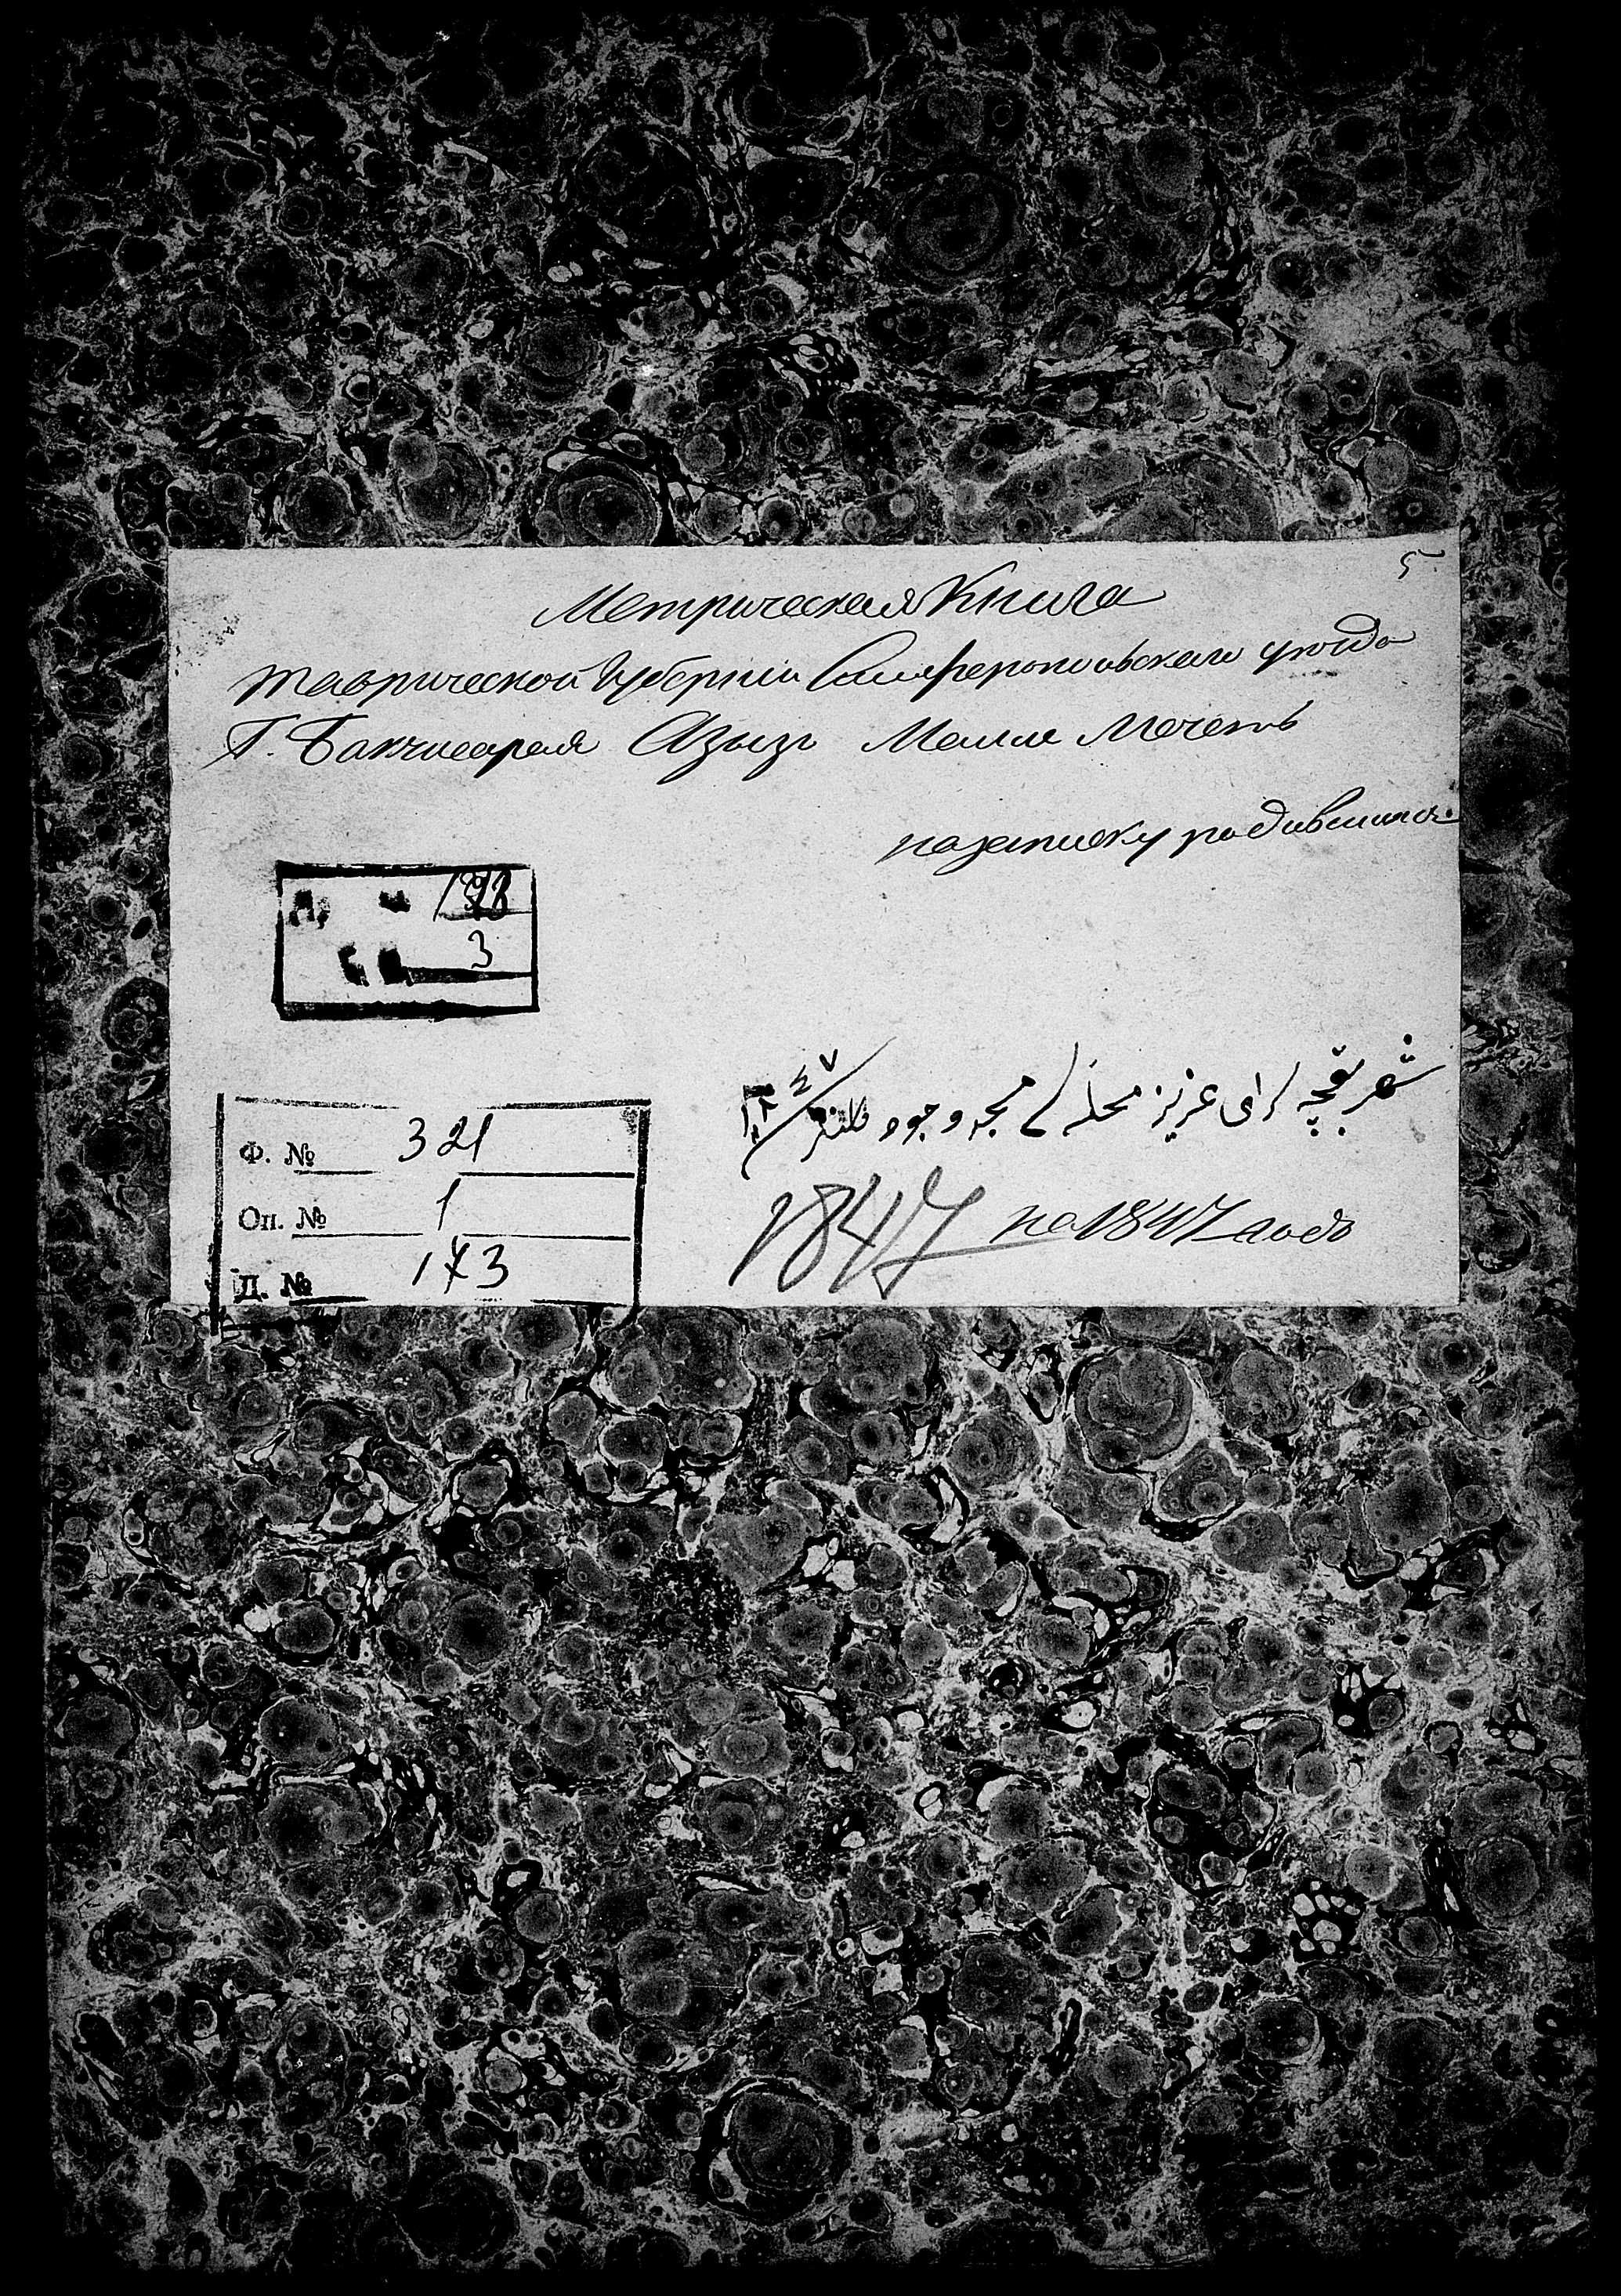 5
Метрическая Книга
таврической губернии Симферопольскаго уезда
Г. Бакчисарая Азызъ Мечеть
на записку родившихся
3
شهر بغچه سراى عزيز محله
1847 на 1847 годъ
Ф. № 321
Оп. № 1
Д. № 173